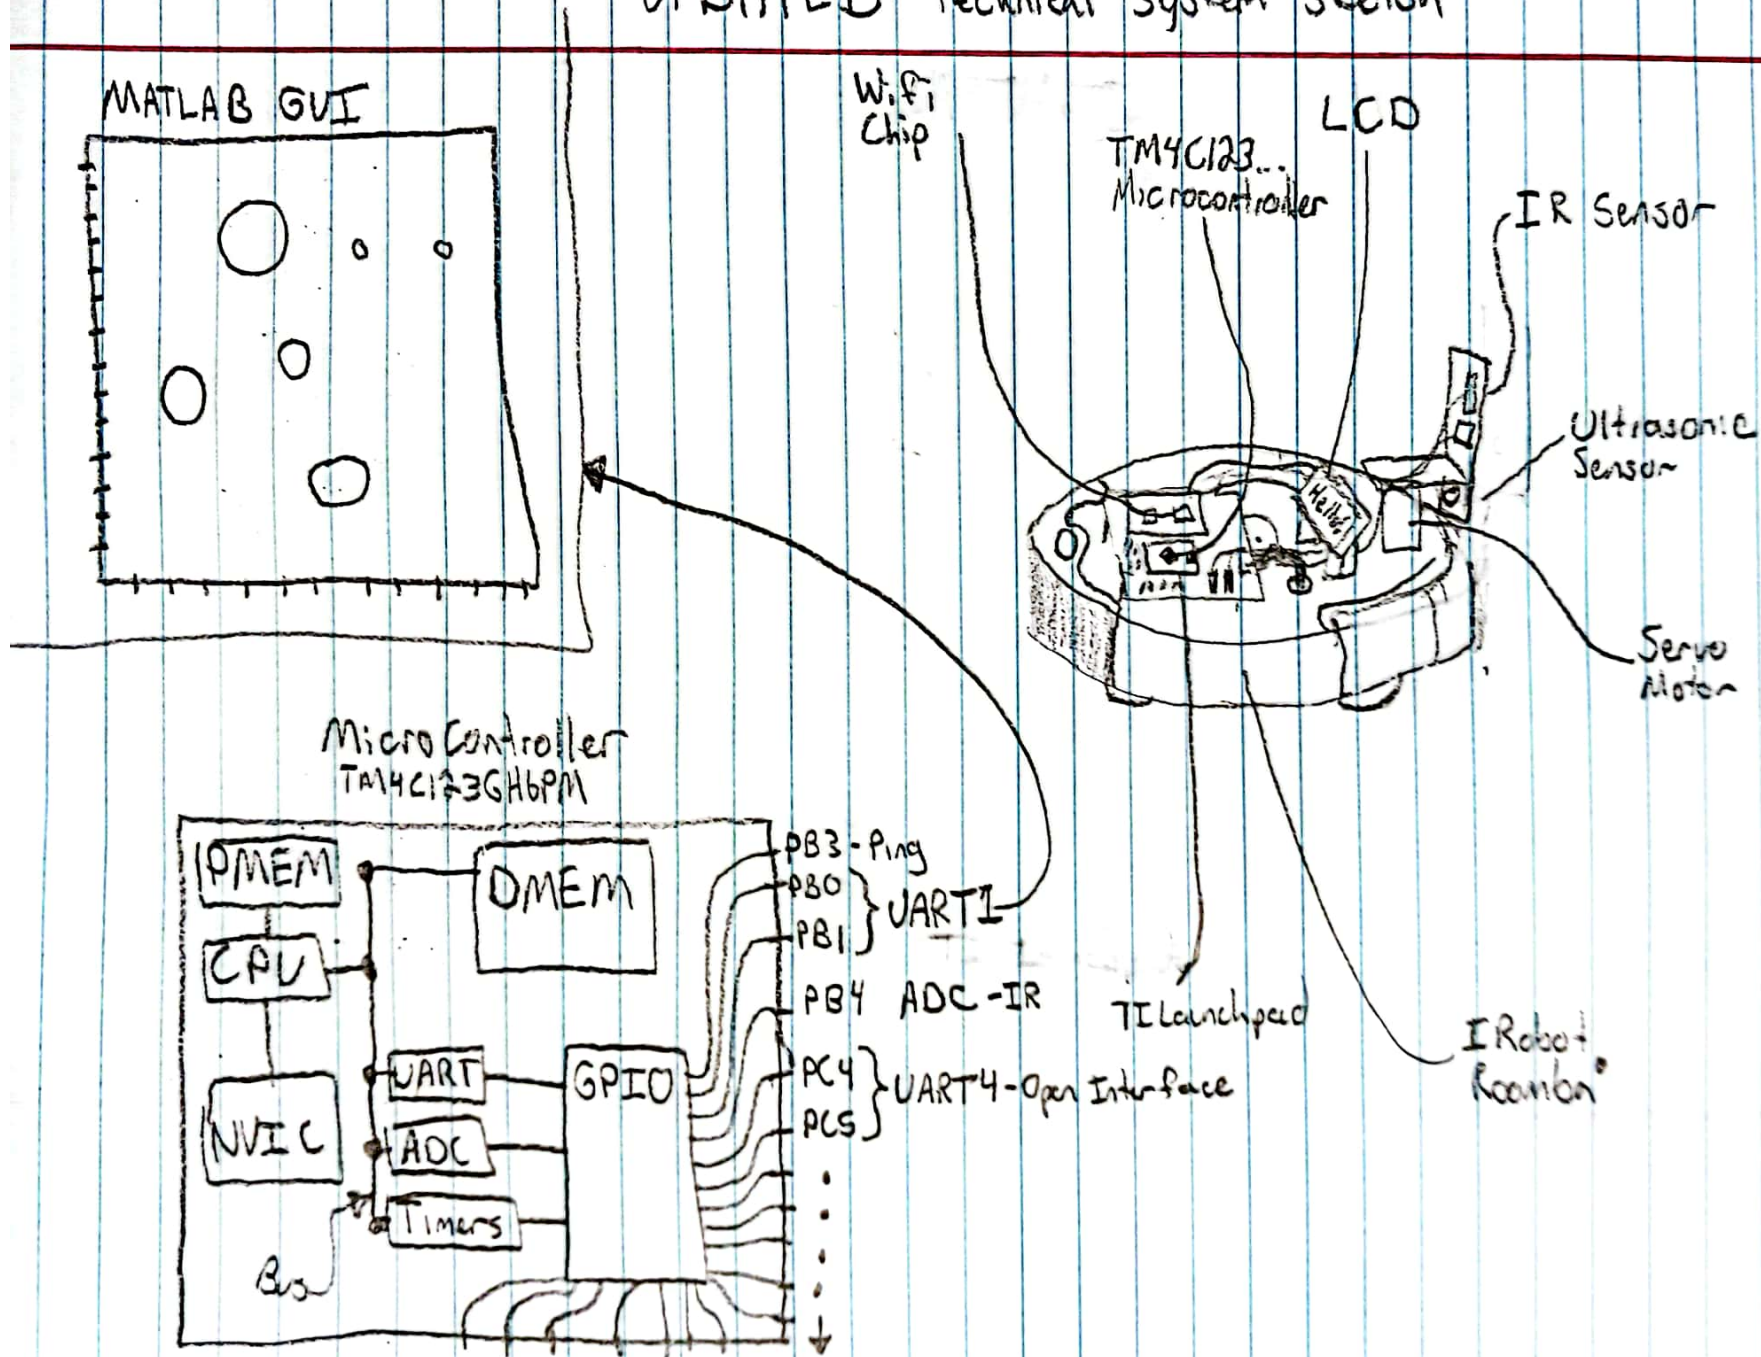 UPDATED Technical System Sketch
MATLAB GUI
Wifi
Chip
TM4C123...
Microcontroller
LCD
IR Sensor
Ultrasonic
Sensor
Hello
Servo
Motor
MicroController
TM4C123GH6PM
PMEM
DMEM
CPU
NVIC
UART
ADC
Timers
GPIO
Bus
PB3-Ping
PB0
PB1
UART1
PB4 ADC-IR
PC4
PC5
UART4-Open Interface
TI Launchpad
IRobot
Roomba